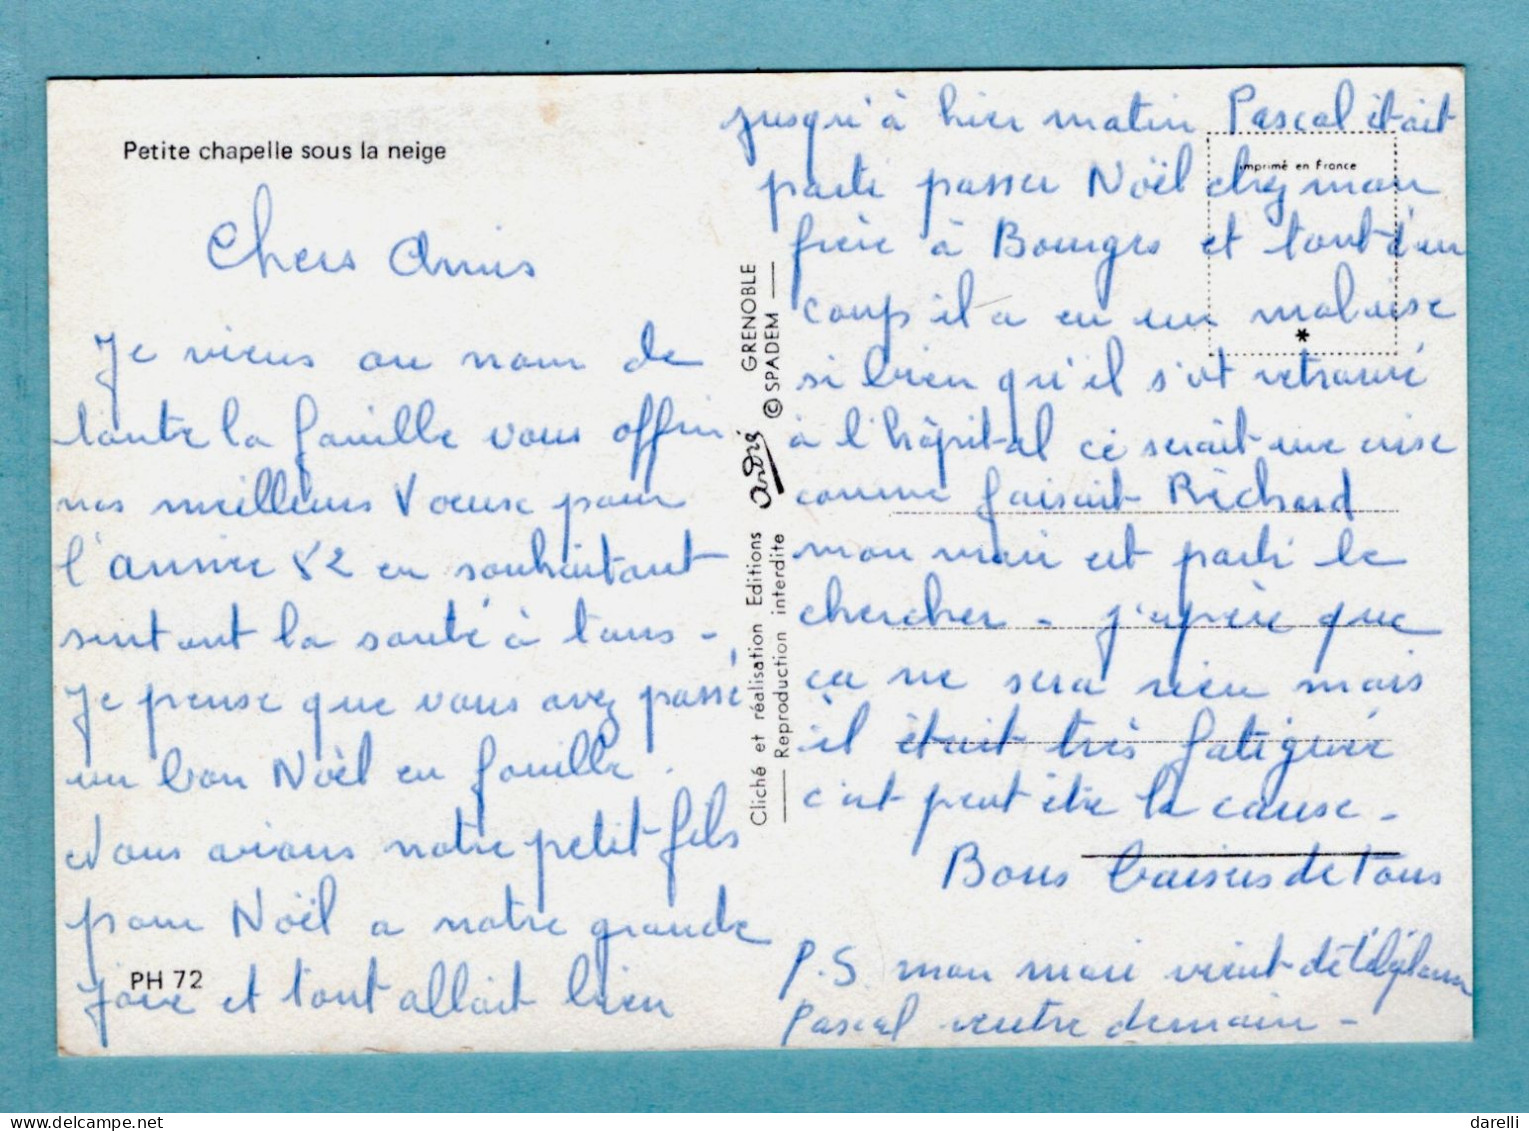 Petite chapelle sous la neige
Chers Amis
Je viens au nom de
toute la famille vous offrir
nos meilleurs Voeux pour
l'année 82 en souhaitant
surtout la santé à tous -
Je pense que vous avez passé
un bon Noël en famille.
Nous avions notre petit-fils
pour Noël a notre grande
joie et tout allait bien
PH 72
Cliché et réalisation Editions André GRENOBLE
Reproduction interdite © SPADEM
Imprimé en France
*
jusqu'à hier matin Pascal était
parti passer Noël chez mon
frère à Bourges et tout d'un
coup il a eu un malaise
si bien qu'il s'est retrouvé
à l'hôpital ce serait une crise
comme faisait Richard
mon mari est parti le
chercher - j'espère que
ça ne sera rien mais
il était très fatigué
c'est peut être la cause -
Bons baisers de tous
P.S mon mari vient de téléphoner
Pascal rentre demain -
darelli